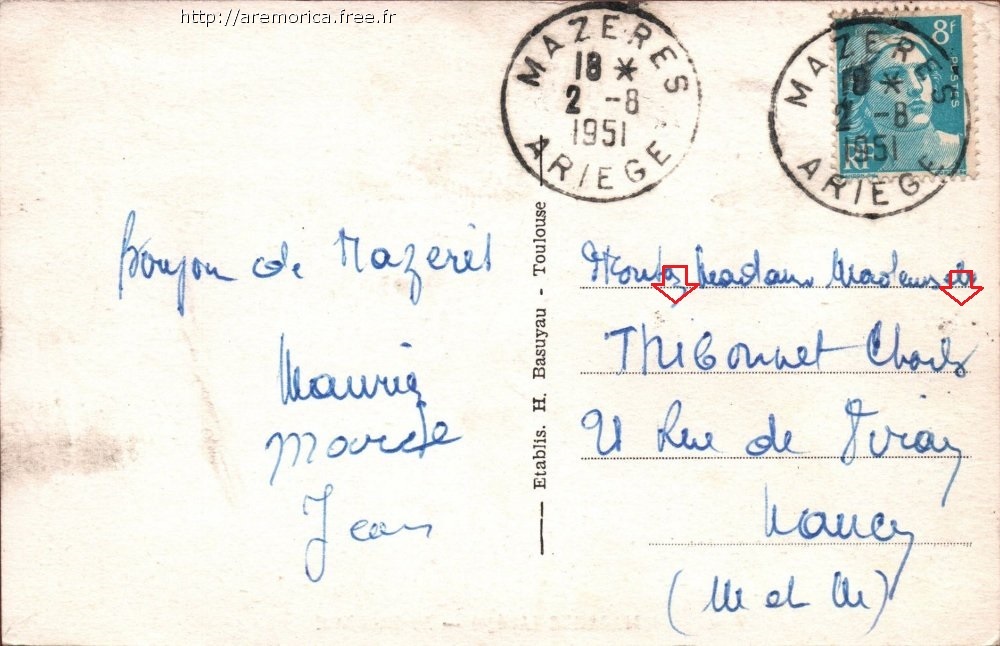 http://aremorica.free.fr
MAZERES
18 *
2 -8
1951
ARIEGE
8F
POSTES
RF
MAZERES
18 *
2 -8
1951
ARIEGE
Etablis. H. Basuyau - Toulouse
Bonjour de Mazeres
Maurice
Jean
Madame
Thibonnet Charles
21 Rue de
Nancy
(M et M)